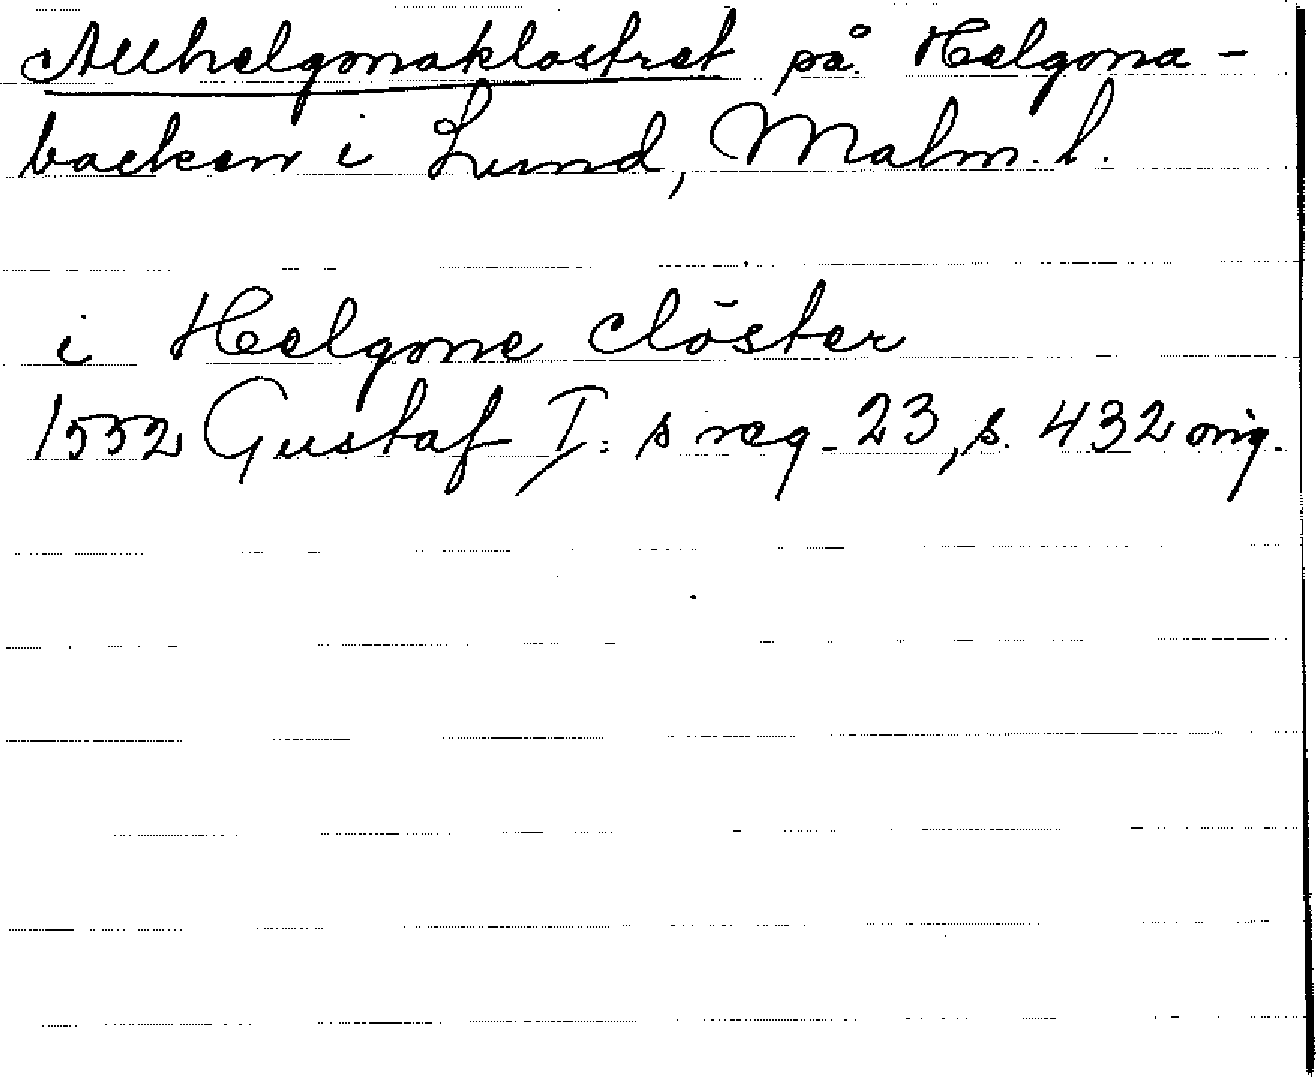 Allhelgonaklostret på Helgona-
backen i Lund, Malm. l.
i Helgone clöster
1552 Gustaf I:s reg. 23, s. 432 orig.